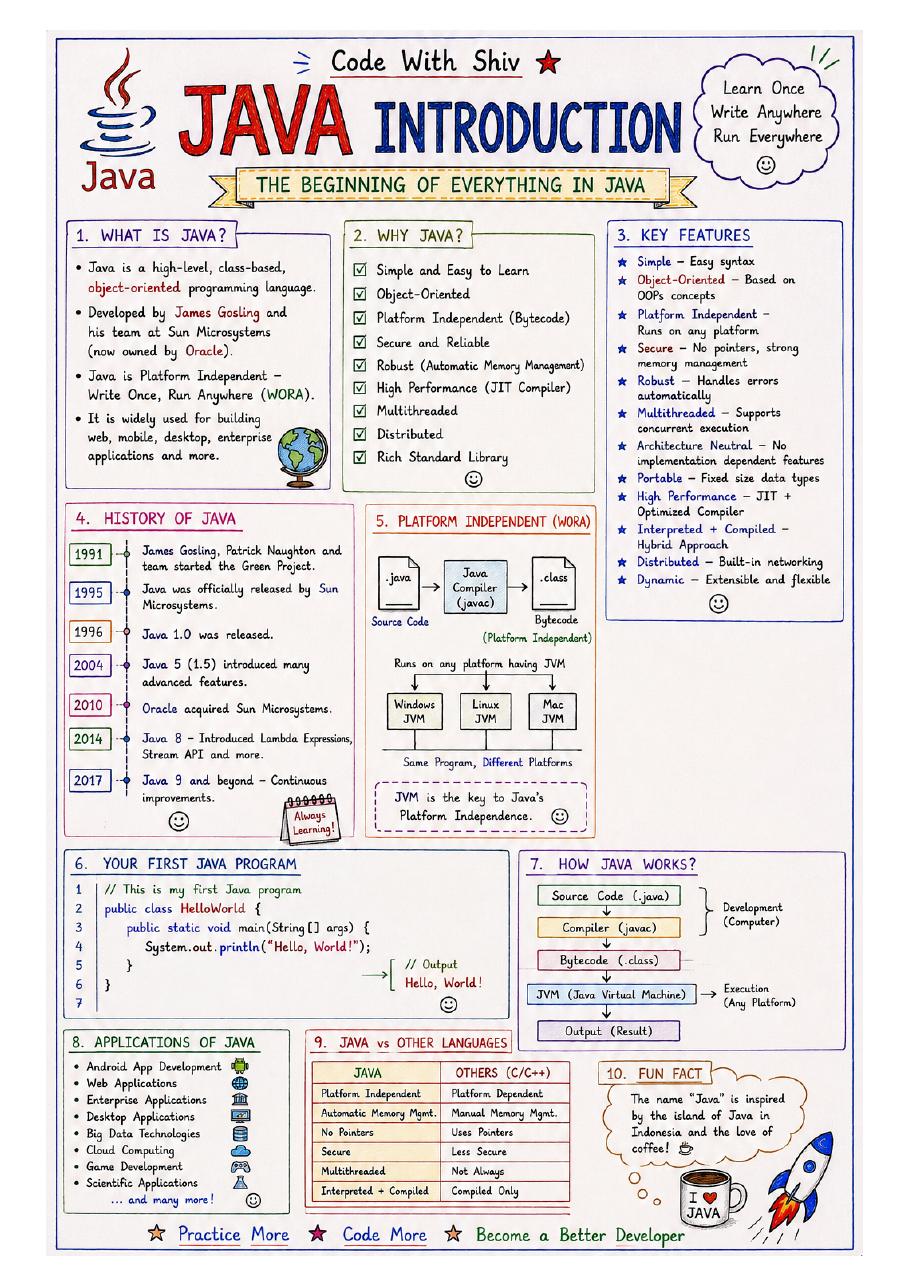 Code With Shiv
JAVA INTRODUCTION
Java
THE BEGINNING OF EVERYTHING IN JAVA
Learn Once
Write Anywhere
Run Everywhere
1. WHAT IS JAVA?
• Java is a high-level, class-based,
object-oriented programming language.
• Developed by James Gosling and
his team at Sun Microsystems
(now owned by Oracle).
• Java is Platform Independent –
Write Once, Run Anywhere (WORA).
• It is widely used for building
web, mobile, desktop, enterprise
applications and more.
2. WHY JAVA?
Simple and Easy to Learn
Object-Oriented
Platform Independent (Bytecode)
Secure and Reliable
Robust (Automatic Memory Management)
High Performance (JIT Compiler)
Multithreaded
Distributed
Rich Standard Library
3. KEY FEATURES
Simple – Easy syntax
Object-Oriented – Based on
OOPs concepts
Platform Independent –
Runs on any platform
Secure – No pointers, strong
memory management
Robust – Handles errors
automatically
Multithreaded – Supports
concurrent execution
Architecture Neutral – No
implementation dependent features
Portable – Fixed size data types
High Performance – JIT +
Optimized Compiler
Interpreted + Compiled –
Hybrid Approach
Distributed – Built-in networking
Dynamic – Extensible and flexible
4. HISTORY OF JAVA
1991 James Gosling, Patrick Naughton and
team started the Green Project.
1995 Java was officially released by Sun
Microsystems.
1996 Java 1.0 was released.
2004 Java 5 (1.5) introduced many
advanced features.
2010 Oracle acquired Sun Microsystems.
2014 Java 8 – Introduced Lambda Expressions,
Stream API and more.
2017 Java 9 and beyond – Continuous
improvements.
Always
Learning!
5. PLATFORM INDEPENDENT (WORA)
.java
Java
Compiler
(javac)
.class
Source Code
Bytecode
(Platform Independent)
Runs on any platform having JVM
Windows
JVM
Linux
JVM
Mac
JVM
Same Program, Different Platforms
JVM is the key to Java's
Platform Independence.
6. YOUR FIRST JAVA PROGRAM
1 // This is my first Java program
2 public class HelloWorld {
3 public static void main(String[] args) {
4 System.out.println("Hello, World!");
5 }
6 }
7
// Output
Hello, World!
7. HOW JAVA WORKS?
Source Code (.java)
Compiler (javac)
Development
(Computer)
Bytecode (.class)
JVM (Java Virtual Machine)
Execution
(Any Platform)
Output (Result)
8. APPLICATIONS OF JAVA
• Android App Development
• Web Applications
• Enterprise Applications
• Desktop Applications
• Big Data Technologies
• Cloud Computing
• Game Development
• Scientific Applications
... and many more!
9. JAVA vs OTHER LANGUAGES
JAVA OTHERS (C/C++)
Platform Independent Platform Dependent
Automatic Memory Mgmt. Manual Memory Mgmt.
No Pointers Uses Pointers
Secure Less Secure
Multithreaded Not Always
Interpreted + Compiled Compiled Only
10. FUN FACT
The name "Java" is inspired
by the island of Java in
Indonesia and the love of
coffee!
I ♥
JAVA
Practice More ★ Code More ★ Become a Better Developer